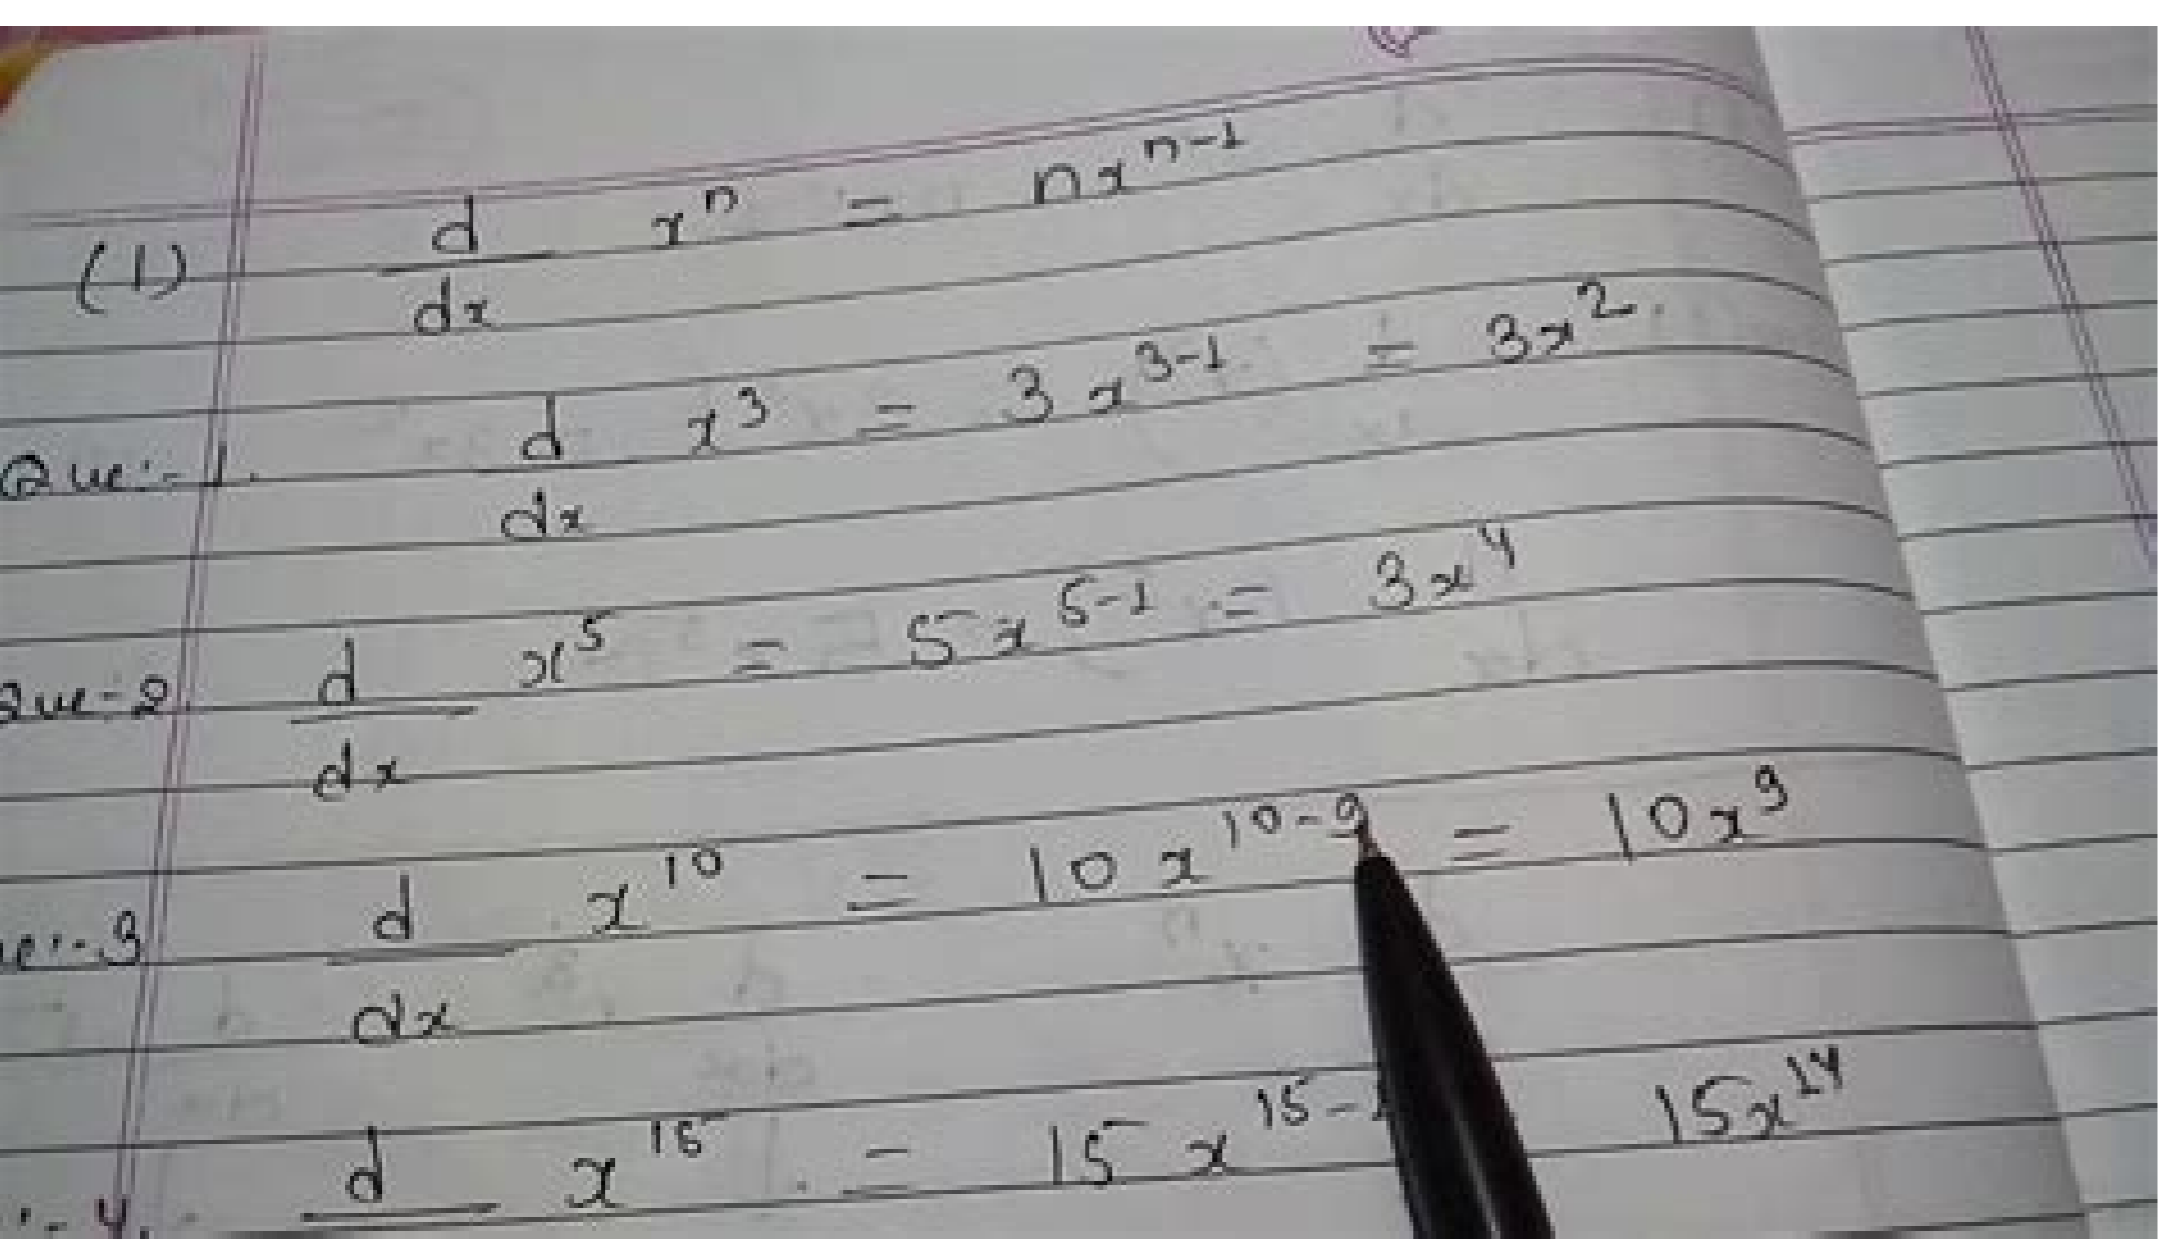 (1) d/dx xⁿ = nxⁿ⁻¹
Que:-1. d/dx x³ = 3x³⁻¹ = 3x²
Que:-2 d/dx x⁵ = 5x⁵⁻¹ = 3x⁴
ue:-3 d/dx x¹⁰ = 10x¹⁰⁻⁹ = 10x⁹
:-4. d x¹⁵ = 15x¹⁵⁻ 15x¹⁴